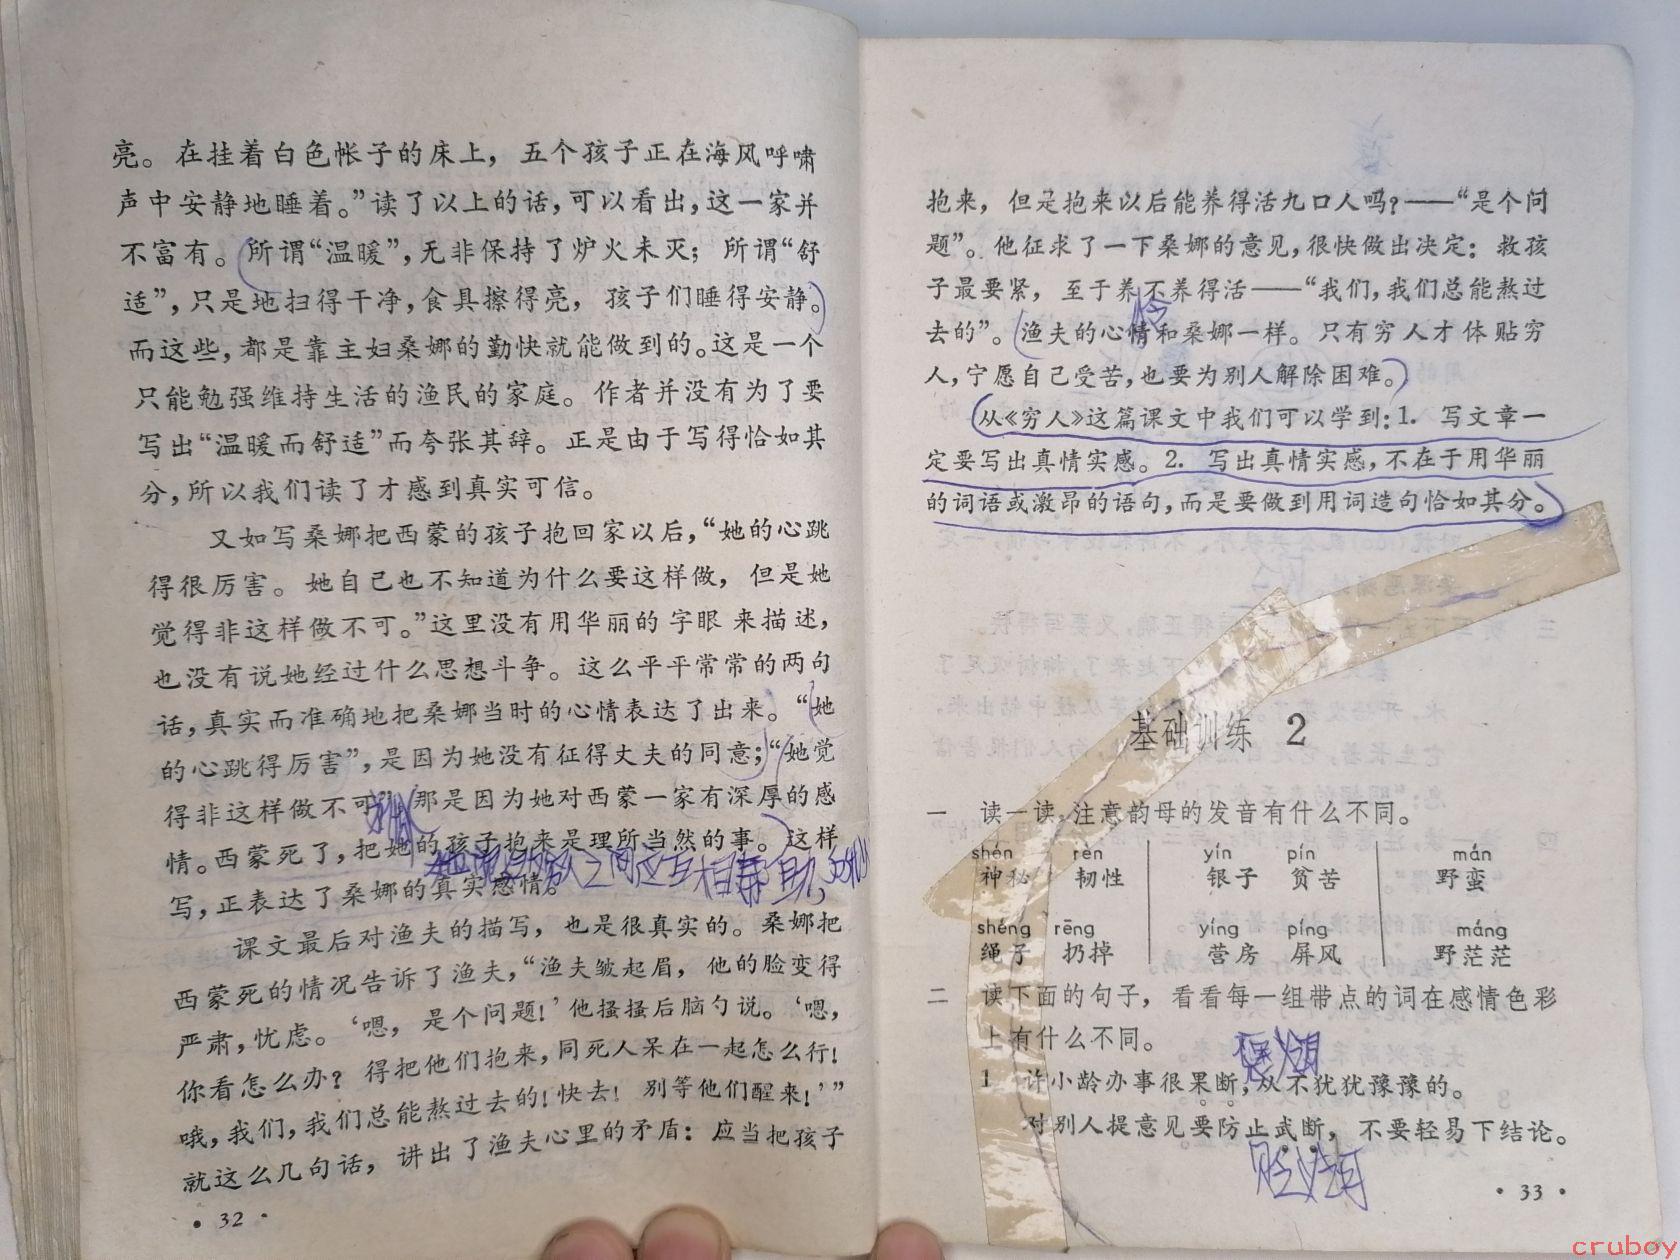 亮。在挂着白色帐子的床上，五个孩子正在海风呼啸
声中安静地睡着。”读了以上的话，可以看出，这一家并
不富有。所谓“温暖”，无非保持了炉火未灭；所谓“舒
适”，只是地扫得干净，食具擦得亮，孩子们睡得安静。
而这些，都是靠主妇桑娜的勤快就能做到的。这是一个
只能勉强维持生活的渔民的家庭。作者并没有为了要
写出“温暖而舒适”而夸张其辞。正是由于写得恰如其
分，所以我们读了才感到真实可信。
又如写桑娜把西蒙的孩子抱回家以后，“她的心跳
得很厉害。她自己也不知道为什么要这样做，但是她
觉得非这样做不可。”这里没有用华丽的字眼来描述，
也没有说她经过什么思想斗争。这么平平常常的两句
话，真实而准确地把桑娜当时的心情表达了出来。“她
的心跳得厉害”，是因为她没有征得丈夫的同意；“她觉
得非这样做不可”，那是因为她对西蒙一家有深厚的感
情。西蒙死了，把她的孩子抱来是理所当然的事。这样
之间应互相帮助，
写，正表达了桑娜的真实感情。
课文最后对渔夫的描写，也是很真实的。桑娜把
西蒙死的情况告诉了渔夫，“渔夫皱起眉，他的脸变得
严肃，忧虑。‘嗯，是个问题！’他搔搔后脑勺说。‘嗯，
你看怎么办？得把他们抱来，同死人呆在一起怎么行！
哦，我们，我们总能熬过去的！快去！别等他们醒来！’”
就这么几句话，讲出了渔夫心里的矛盾：应当把孩子
• 32 •
抱来，但是抱来以后能养得活九口人吗？——“是个问
题”。他征求了一下桑娜的意见，很快做出决定：救孩
子最要紧，至于养不养得活——“我们，我们总能熬过
去的”。渔夫的心情和桑娜一样。只有穷人才体贴穷
人，宁愿自己受苦，也要为别人解除困难。
从《穷人》这篇课文中我们可以学到：1. 写文章一
定要写出真情实感。2. 写出真情实感，不在于用华丽
的词语或激昂的语句，而是要做到用词造句恰如其分。
基础训练 2
一 读一读，注意韵母的发音有什么不同。
shén rèn yín pín mán
神秘 韧性 银子 贫苦 野蛮
shéng rēng yíng píng máng
绳子 扔掉 营房 屏风 野茫茫
二 读下面的句子，看看每一组带点的词在感情色彩
上有什么不同。
1 许小龄办事很果断，从不犹犹豫豫的。
对别人提意见要防止武断，不要轻易下结论。
贬义词
• 33 •
cruboy